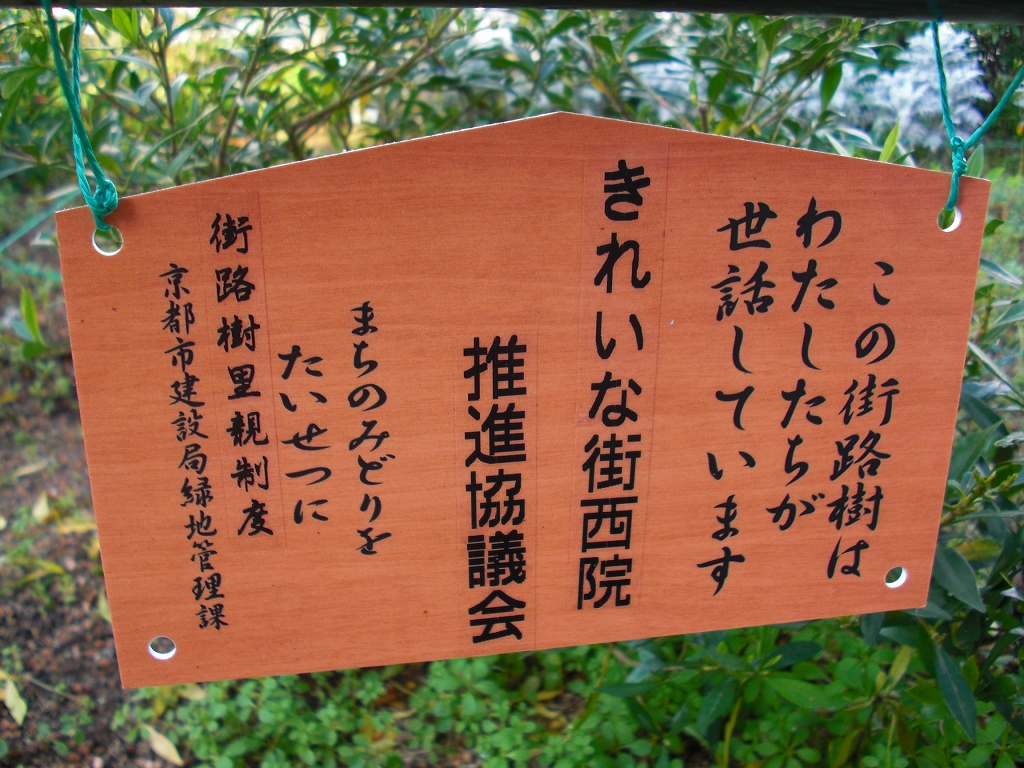 この街路樹は
わたしたちが
世話しています
きれいな街西院
推進協議会
まちのみどりを
たいせつに
街路樹里親制度
京都市建設局緑地管理課